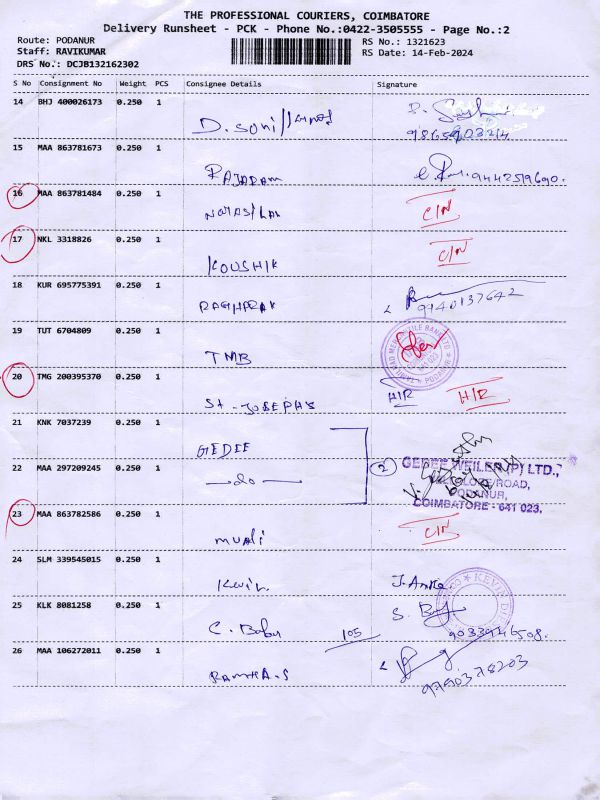 THE PROFESSIONAL COURIERS, COIMBATORE
Delivery Runsheet - PCK - Phone No.:0422-3505555 - Page No.:2
Route: PODANUR
RS No.: 1321623
Staff: RAVIKUMAR
RS Date: 14-Feb-2024
DRS No.: DCJB132162302
S No Consignment No Weight PCS Consignee Details Signature
14 BHJ 400026173 0.250 1
15 MAA 863781673 0.250 1
RAJARAM 9442519690.
16 MAA 863781484 0.250 1
C/N
17 NKL 3318826 0.250 1
C/N
KOUSHIK
18 KUR 695775391 0.250 1
9140137642
19 TUT 6704809 0.250 1
TMB
PODANUR
20 TMG 200395370 0.250 1
St-JOSEPH'S H/R H/R
21 KNK 7037239 0.250 1
GEDEE
22 MAA 297209245 0.250 1
-do- 2
GEDEE WEILER (P) LTD.,
PODANUR,
COIMBATORE - 641 023.
23 MAA 863782586 0.250 1
C/N
24 SLM 339545015 0.250 1
Kevin
25 KLK 8081258 0.250 1
C. Babu 105
9033946508.
26 MAA 106272011 0.250 1
9790378203